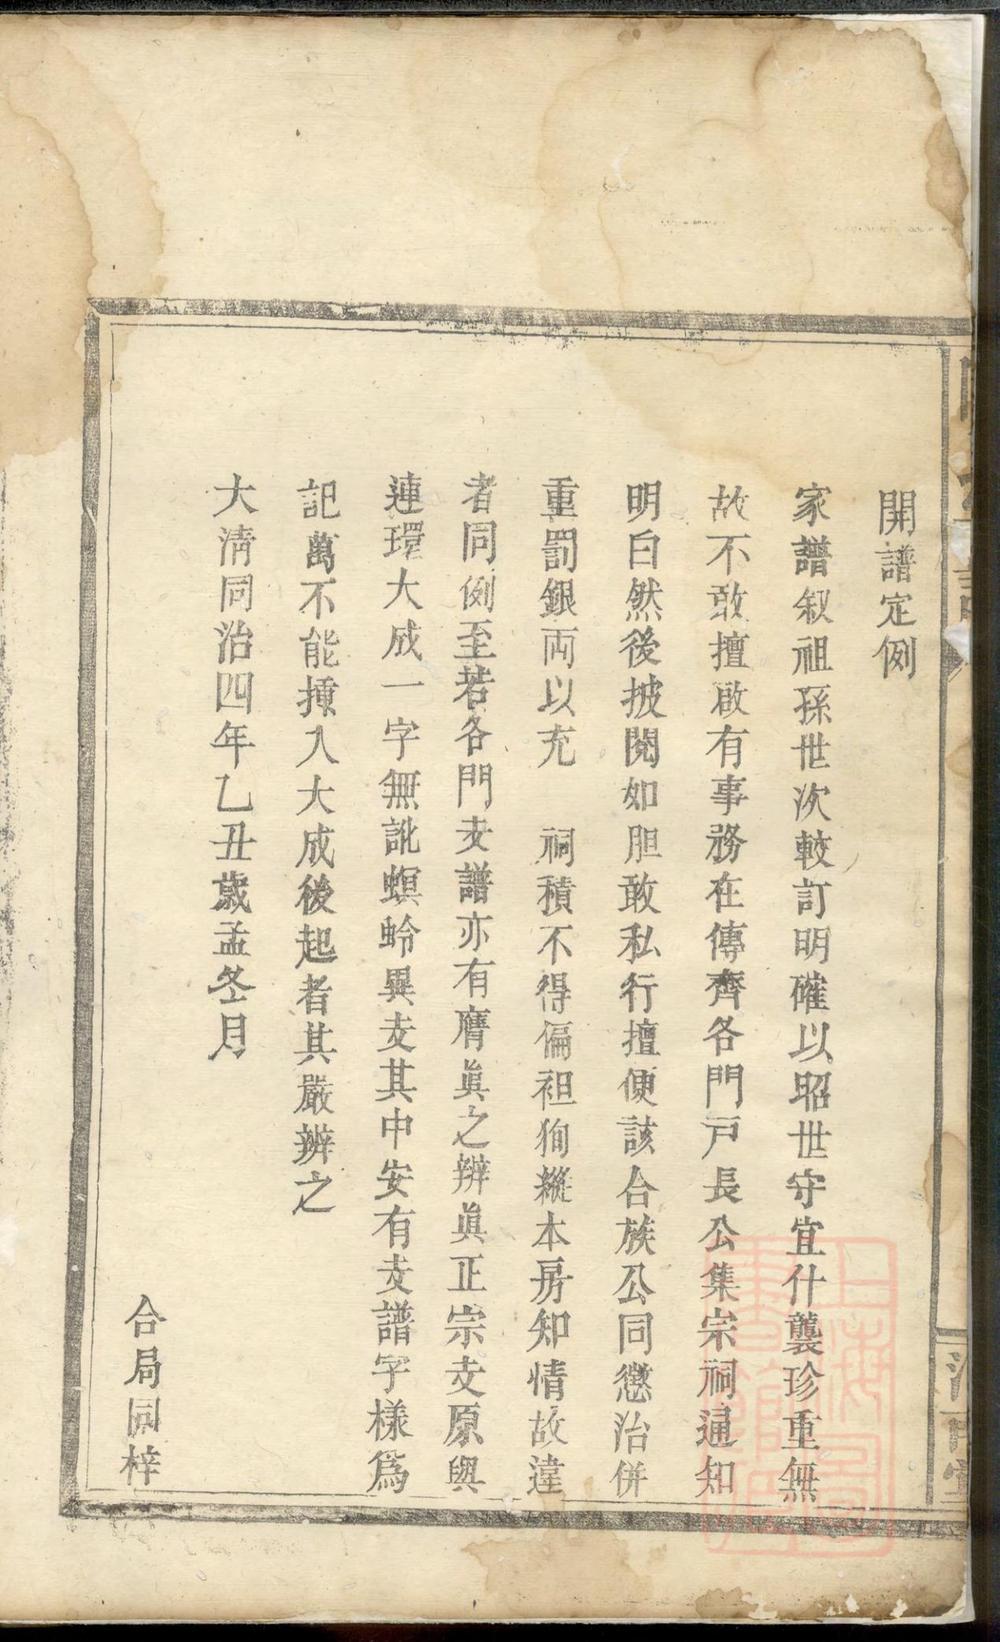 開譜定例
家譜叙祖孫世次較訂明確以昭世守宜什襲珍重無
故不敢擅啟有事務在傳齊各門戶長公集宗祠通知
明白然後披閱如胆敢私行擅便該合族公同懲治併
重罰銀両以充　祠積不得偏袒狥縱本房知情故違
者同例至若各門支譜亦有贋眞之辨眞正宗支原與
連環大成一字無訛螟蛉異支其中安有支譜字樣爲
記萬不能揷入大成後起者其嚴辨之
大清同治四年乙丑歲孟冬月
合局同梓
上海圖書館藏